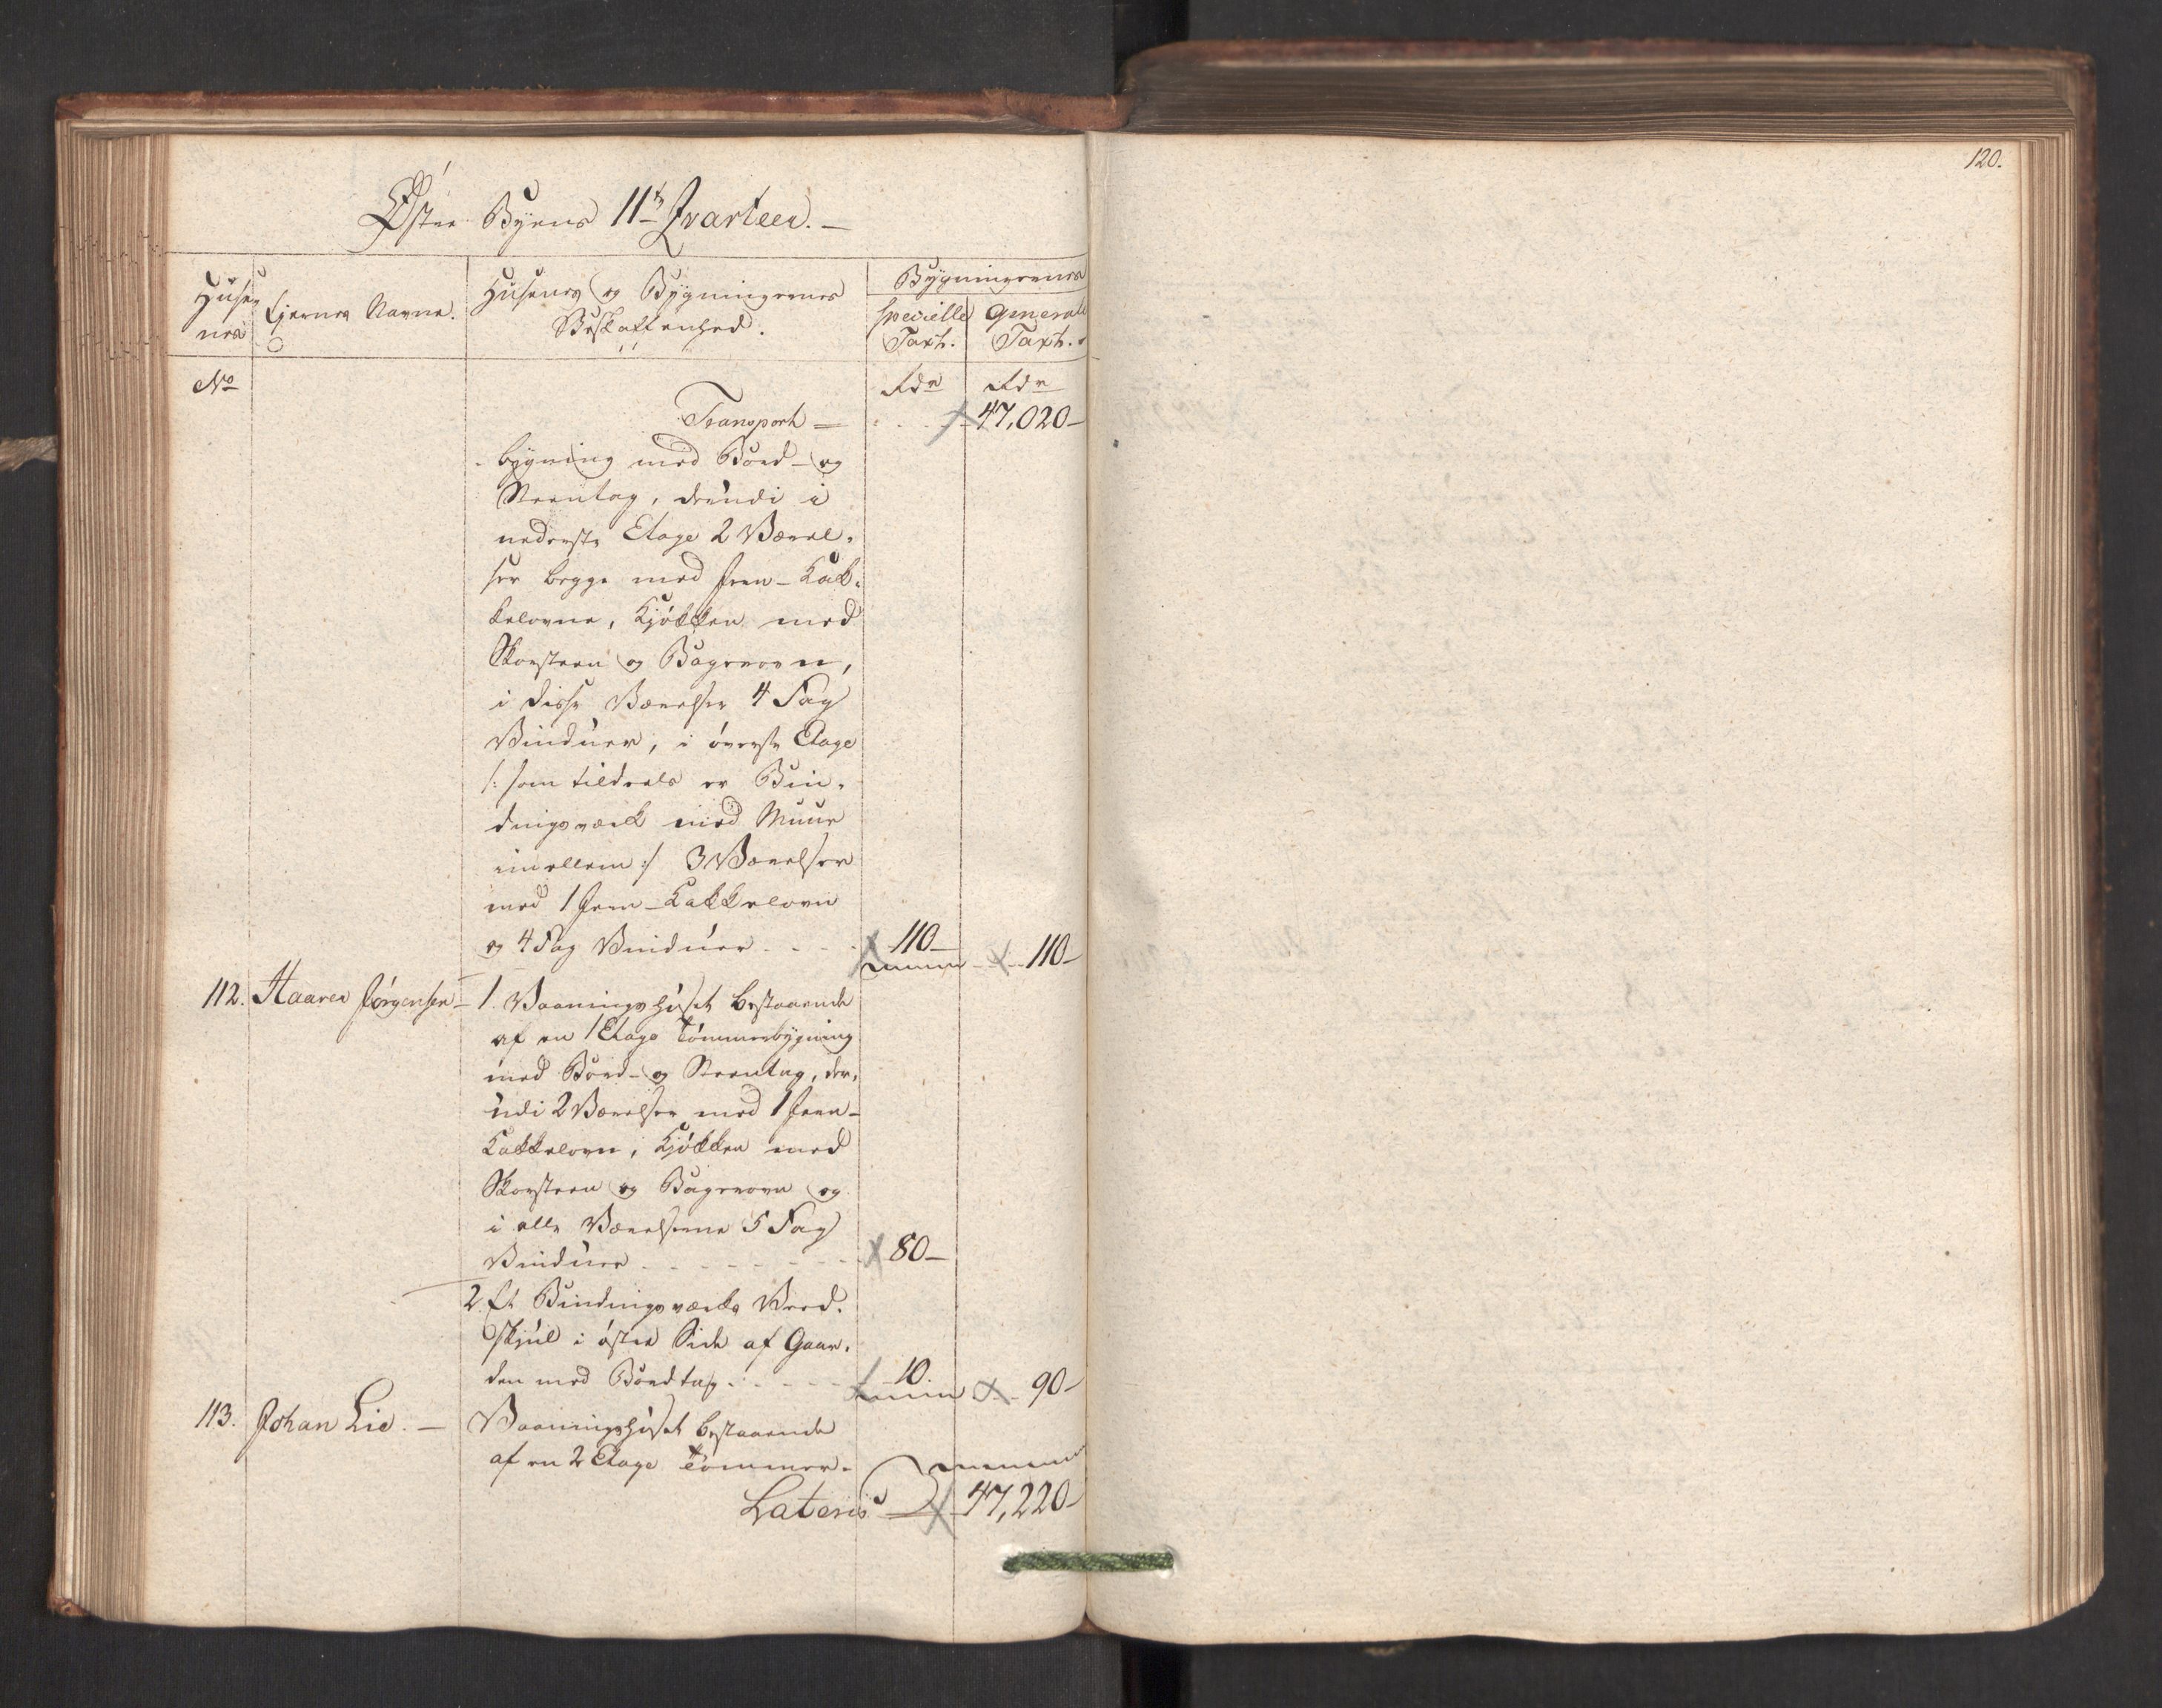 120.
Øster Byens 11te Qvarteer. —
Huse-
nes
Ejernes Navne.
Husenes og Bygningernes
Beskaffenhed.
Bygningernes
specielle Taxt.
Generale Taxt.
No
Rdr
Rdr
Transport = 47,020 —
bygning med Bord- og
Steentag, derudi i
nederste Etage 2 Værel-
ser begge med Jern-Kak-
kelovne, Kjökken med
Skorsteen og Bagerovn,
i disse Værelser 4 Fag
Vinduer, i överste Etage
/: som tildeels er Bin-
dingsværk med Muur
imellem :/ 3 Værelser
med 1 Jern-Kakkelovn
og 4 Fag Vinduer . . . . 110 — 110 —
112. Haaver Jörgensen — 1. Vaaningshuset bestaaende
af en 1 Etage Tömmerbygning
med Bord- og Steentag, der-
udi 2 Værelser med 1 Jern-
Kakkelovn, Kjökken med
Skorsteen og Bagerovn og
i alle Værelserne 5 Fag
Vinduer . . . . . . . . 80 —
2. Et Bindingsværks Veed-
skjul i öster Side af Gaar-
den med Bordtag . . . . . 10. 90 —
113. Johan Lie. — Vaaningshuset bestaaende
af en 2 Etage Tömmer-
Lateris 47,220 —